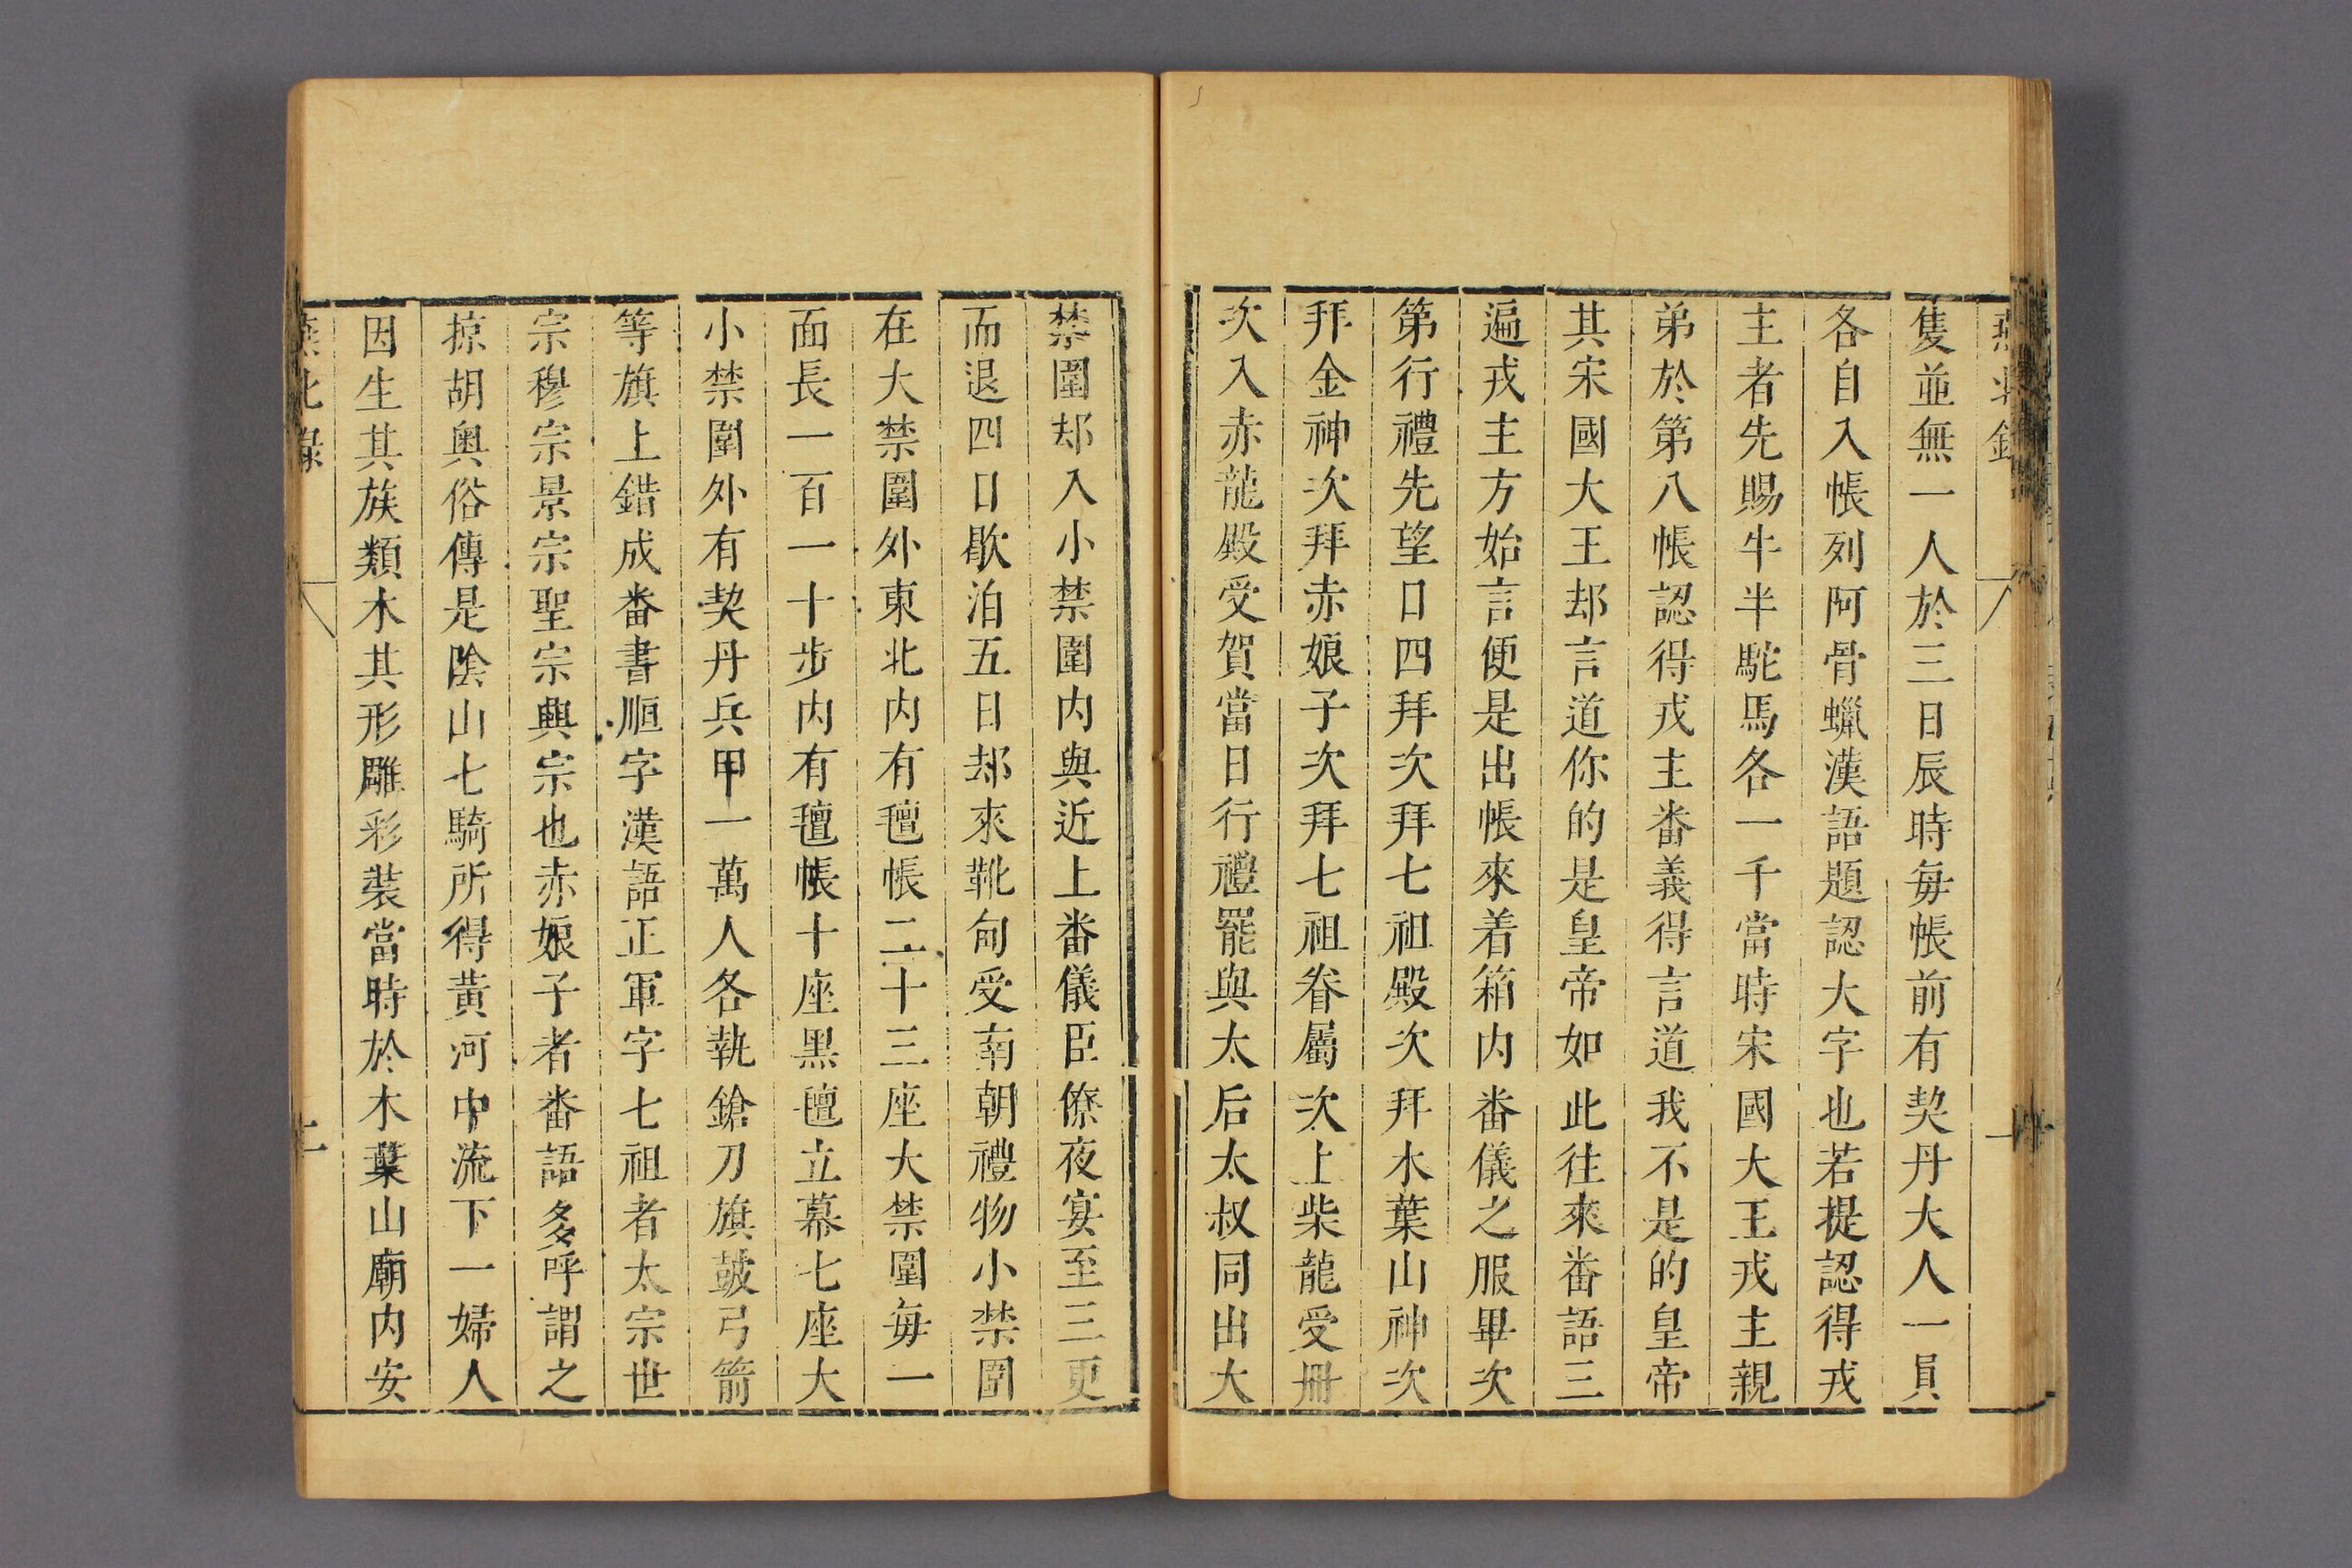 隻並無一人於三日辰時每帳前有契丹大人一員
各自入帳列阿骨蠟漢語題認大字也若提認得戎
主者先賜牛半駝馬各一千當時宋國大王戎主親
弟於第八帳認得戎主番義得言道我不是的皇帝
其宋國大王却言道你的是皇帝如此往來番語三
遍戎主方始言便是出帳來着箱内番儀之服畢次
第行禮先望日四拜次拜七祖殿次拜木葉山神次
拜金神次拜赤娘子次拜七祖眷屬次上柴龍受冊
次入赤龍殿受賀當日行禮罷與太后太叔同出大
禁圍却入小禁圍内與近上番儀臣僚夜宴至三更
而退四日歇泊五日却來靴甸受南朝禮物小禁圍
在大禁圍外東北内有氊帳二十三座大禁圍每一
面長一百一十步内有氊帳十座黑氊立幕七座大
小禁圍外有契丹兵甲一萬人各執鎗刀旗鼓弓箭
等旗上錯成番書𦙍字漢語正軍字七祖者太宗世
宗穆宗景宗聖宗興宗也赤娘子者番語多呼謂之
掠胡奥俗傳是陰山七騎所得黃河中流下一婦人
因生其族類木其形雕彩裝當時於木葉山廟内安
燕北錄